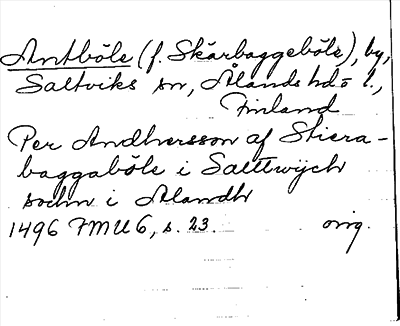 Antböle (f. Skarbaggeböle), by,
Saltviks sn, Ålands hd o l.,
Finland
Per Andhersson af Stiera-
baggaböle i Salttwijch
sochn i Alandh
1496 FMU 6, s. 23. orig.